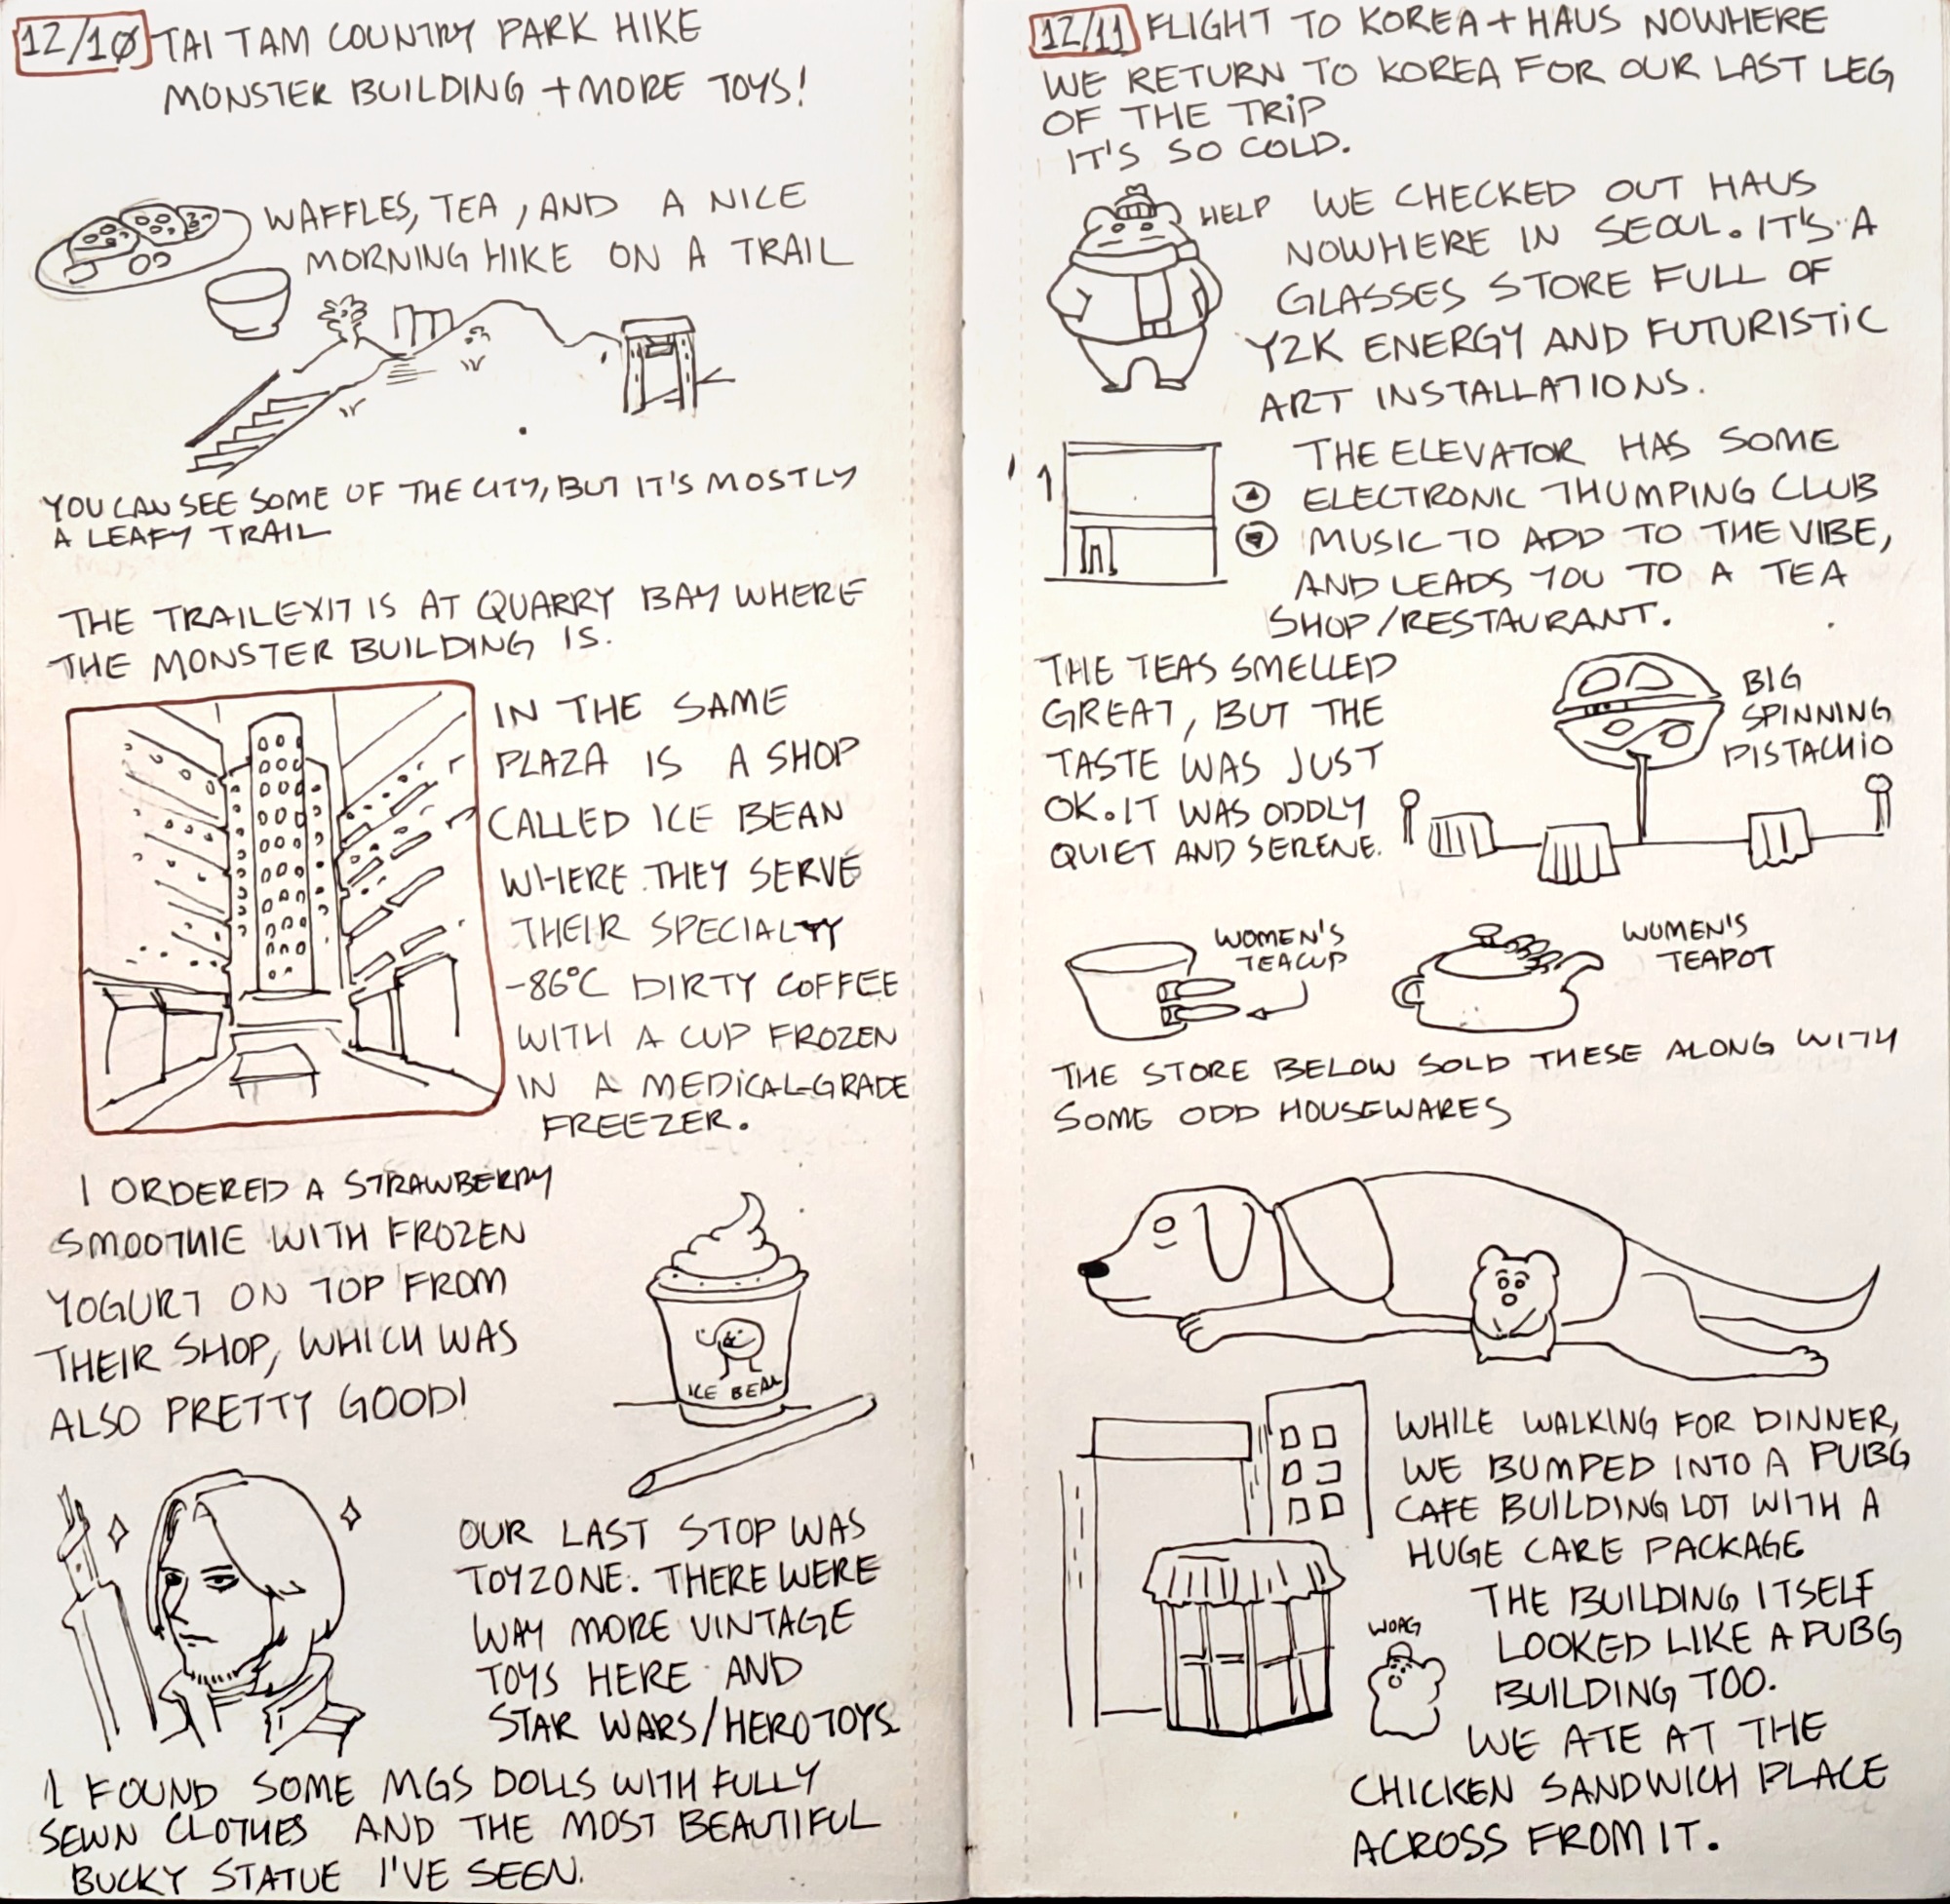 12/10 TAI TAM COUNTRY PARK HIKE
MONSTER BUILDING + MORE TOYS!
WAFFLES, TEA, AND A NICE
MORNING HIKE ON A TRAIL
YOU CAN SEE SOME OF THE CITY, BUT IT'S MOSTLY
A LEAFY TRAIL
THE TRAIL EXIT IS AT QUARRY BAY WHERE
THE MONSTER BUILDING IS.
IN THE SAME
PLAZA IS A SHOP
CALLED ICE BEAN
WHERE THEY SERVE
THEIR SPECIALTY
-86°C DIRTY COFFEE
WITH A CUP FROZEN
IN A MEDICAL-GRADE
FREEZER.
I ORDERED A STRAWBERRY
SMOOTHIE WITH FROZEN
YOGURT ON TOP FROM
THEIR SHOP, WHICH WAS
ALSO PRETTY GOOD!
ICE BEAN
OUR LAST STOP WAS
TOYZONE. THERE WERE
WAY MORE VINTAGE
TOYS HERE AND
STAR WARS/HERO TOYS
I FOUND SOME MGS DOLLS WITH FULLY
SEWN CLOTHES AND THE MOST BEAUTIFUL
BUCKY STATUE I'VE SEEN.
12/11 FLIGHT TO KOREA + HAUS NOWHERE
WE RETURN TO KOREA FOR OUR LAST LEG
OF THE TRIP
IT'S SO COLD.
HELP
WE CHECKED OUT HAUS
NOWHERE IN SEOUL. IT'S A
GLASSES STORE FULL OF
Y2K ENERGY AND FUTURISTIC
ART INSTALLATIONS.
1
THE ELEVATOR HAS SOME
ELECTRONIC THUMPING CLUB
MUSIC TO ADD TO THE VIBE,
AND LEADS YOU TO A TEA
SHOP/RESTAURANT.
THE TEAS SMELLED
GREAT, BUT THE
TASTE WAS JUST
OK. IT WAS ODDLY
QUIET AND SERENE.
BIG
SPINNING
PISTACHIO
WOMEN'S
TEACUP
WOMEN'S
TEAPOT
THE STORE BELOW SOLD THESE ALONG WITH
SOME ODD HOUSEWARES
WHILE WALKING FOR DINNER,
WE BUMPED INTO A PUBG
CAFE BUILDING LOT WITH A
HUGE CARE PACKAGE
THE BUILDING ITSELF
LOOKED LIKE A PUBG
BUILDING TOO.
WOAG
WE ATE AT THE
CHICKEN SANDWICH PLACE
ACROSS FROM IT.